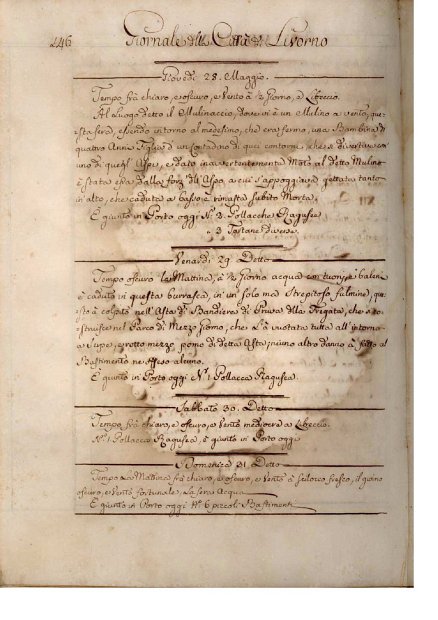 146 Giornale della Città di Livorno
Giovedi 28. Maggio.
Tempo frà chiaro, e oscuro, e Vento à ½ Giorno, e Libeccio.
Al Luogo detto il Mulinaccio, dove vi è un Mulino a vento, que-
sta sera, essendo intorno al medesimo, che era fermo, una Bambina di
quattro Anni Figlia d'un Contadino di quei contorni, che si divertiva con
uno di quegl'Aspi, e dato inavertentemente Moto al detto Mulino
è stata essa dalla forza dell'Aspo, a cui s'appoggiava gettata tanto
in alto, che caduta a basso è rimasta subito Morta.
È giunto in Porto oggi N.º 2. Pollacche Ragusee
" 3 Tartane diverse
Venerdì 29. Detto
Tempo oscuro la Mattina, à ½ Giorno acqua con tuoni, e baleni
è caduto in questa burrasca, in un solo mà Strepitoso fulmine, que-
sto à colpito nell'Asta di Bandiera di Pruva della Fregata, che si co-
struisce nel Parco di Mezzo giorno, che l'à vuotata tutta all'intorno
e rotto mezzo pome di detta Asta; niuno altro danno à fatto al
Bastimento ne offeso alcuno.
È giunto in Porto oggi N.º 1 Pollacca Ragusea.
Sabbato 30. Detto
Tempo frà chiaro, e oscuro, e Vento mediocre a Libeccio.
N.º 1 Pollacca Ragusea, è giunto in Porto oggi
Domenica 31. Detto
Tempo la Mattina frà chiaro, e oscuro, e Vento à Scilocco fresco, il giorno
oscuro, e Vento fortunale, La sera Acqua
È giunto in Porto oggi N.º 6 piccoli Bastimenti